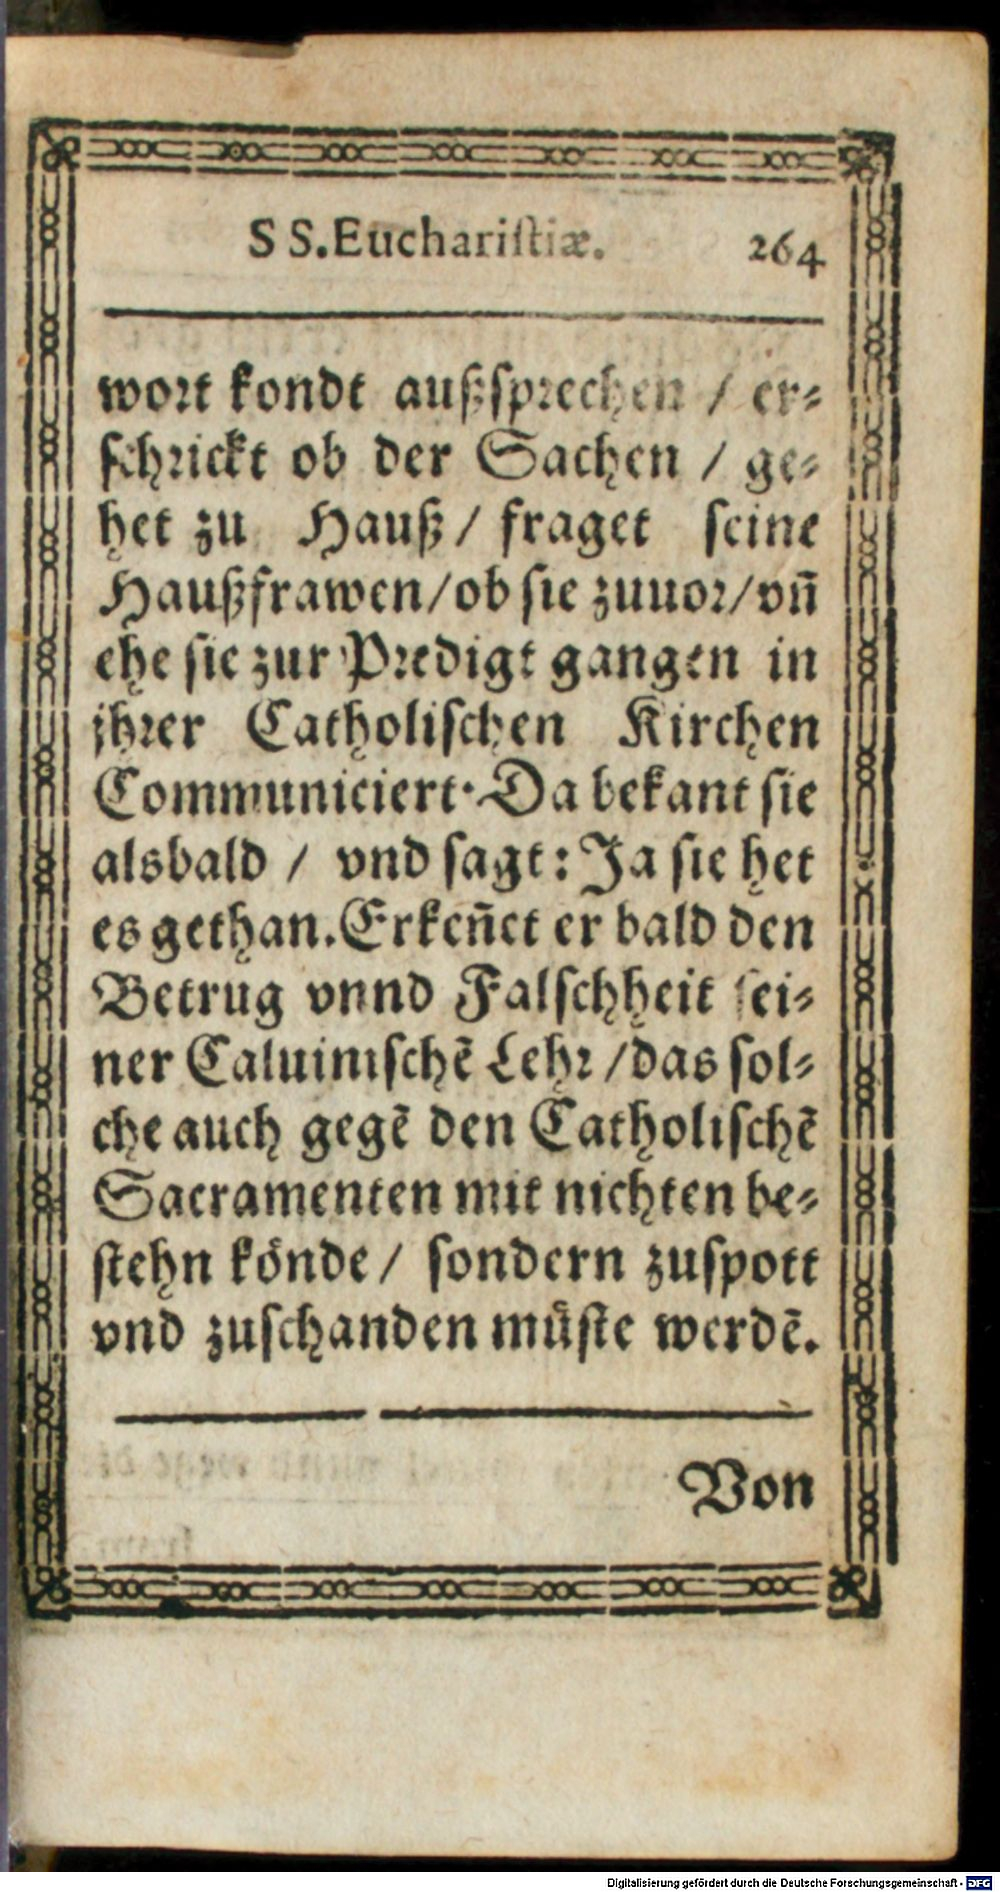 SS. Euchariſtiæ. 264
wort kondt außſprechen / er⸗
ſchrickt ob der Sachen / ge⸗
het zu Hauß / fraget ſeine
Haußfrawen / ob ſie zuuor / vn̄
ehe ſie zur Predigt gangen in
jhrer Catholiſchen Kirchen
Communiciert. Da bekant ſie
alsbald / vnd ſagt: Ja ſie het
es gethan. Erkeñet er bald den
Betrug vnnd Falſchheit ſei⸗
ner Caluiniſchē Lehr / das ſol⸗
che auch gegē den Catholiſchē
Sacramenten mit nichten be⸗
ſtehn könde / ſondern zuſpott
vnd zuſchanden müſte werdē.
Von
Digitalisierung gefördert durch die Deutsche Forschungsgemeinschaft - DFG